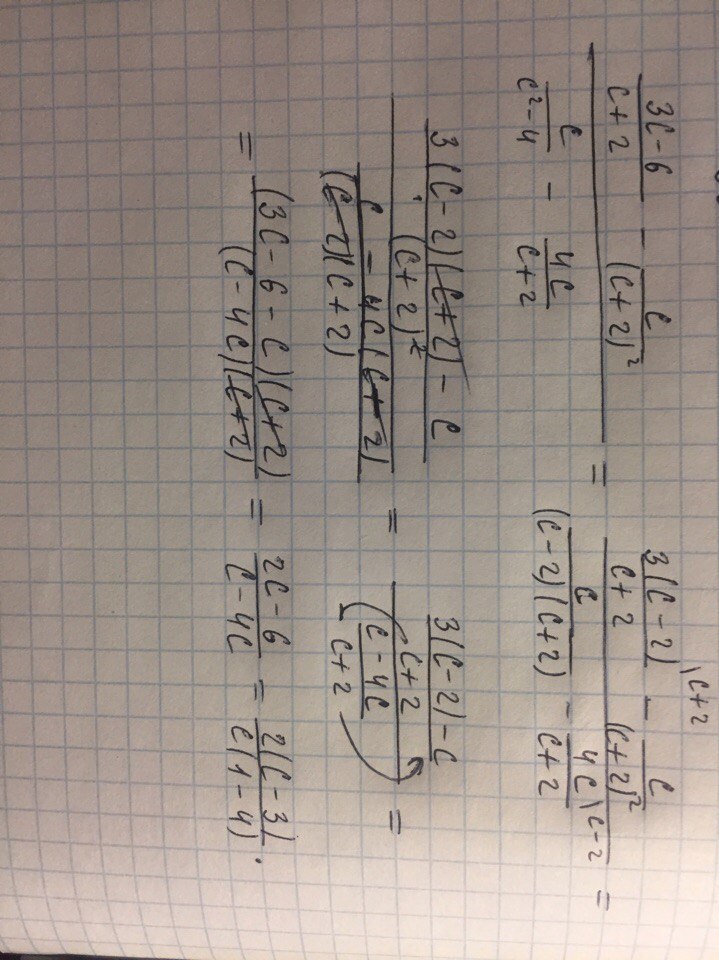 (3c-6)/(c+2) - c/(c+2)²
c/(c²-4) - 4c/(c+2)
=
3(c-2)/(c+2) \c+2 - c/(c+2)²
c/((c-2)(c+2)) - 4c/(c+2) \c-2
=
3(c-2)(c+2) - c
(c+2)²
c - 4c(c+2)
(c-2)(c+2)
=
3(c-2)-c
c+2
c-4c
c+2
=
= (3c-6-c)(c+2)/((c-4c)(c+2)) = (2c-6)/(c-4c) = 2(c-3)/(c(1-4)).